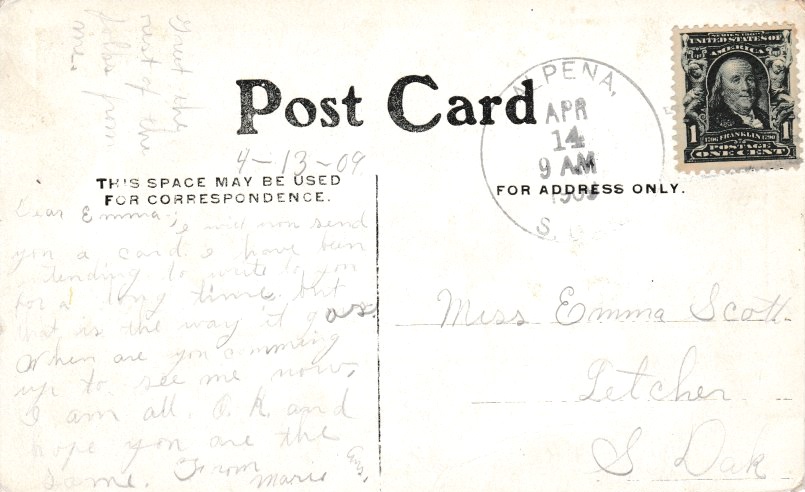 Post Card
4-13-09
THIS SPACE MAY BE USED
FOR CORRESPONDENCE.
FOR ADDRESS ONLY.
Dear Emma:-
I will now send
you a card I have been
tending to write to you
for a long time but
that is the way it goes
When are you comming
up to see me now,
I am all O.K. and
hope you are the
same. From
Marie
the
rest of the
folks from
me.
ALPENA,
APR
14
9 AM
S.
SERIES 1902
UNITED STATES OF
AMERICA
1 1
1706 FRANKLIN 1790
POSTAGE
ONE CENT
Miss Emma Scott
Letcher
S Dak